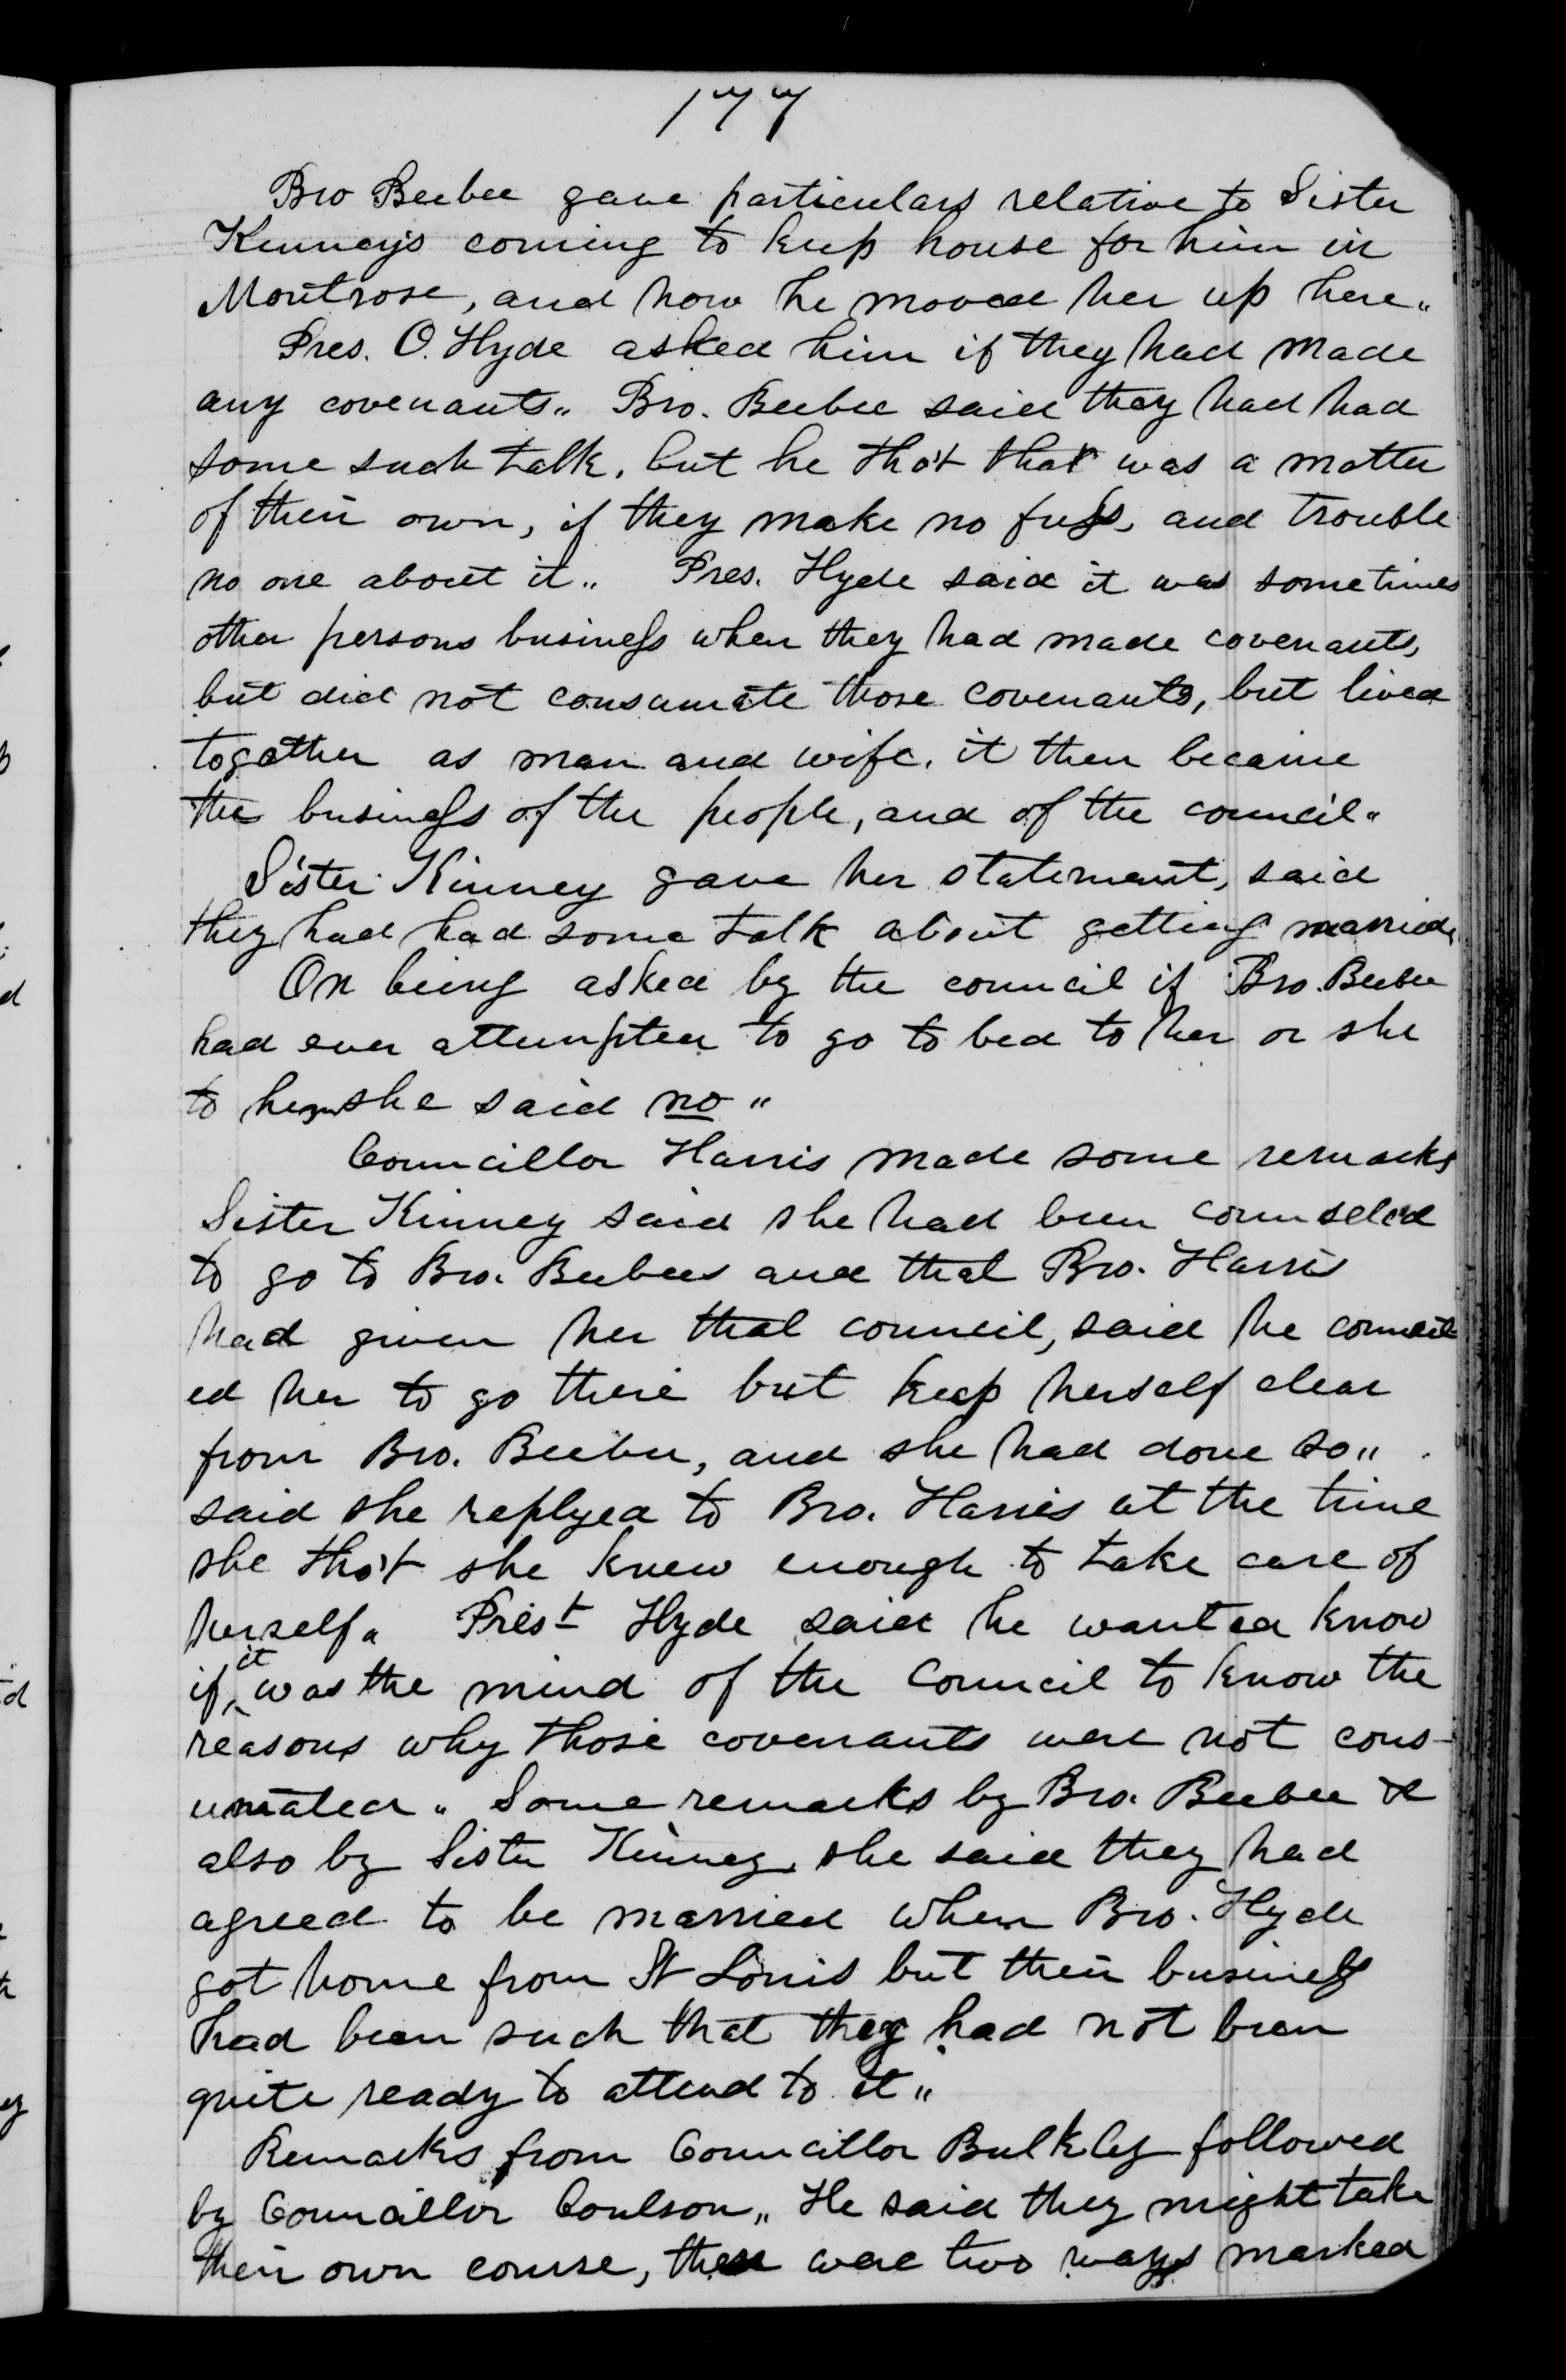 177
Bro Beebee gave particulars relative to Sister
Kinney's coming to keep house for him in
Montrose, and how he moved her up here„
Pres. O. Hyde asked him if they had made
any covenants„ Bro. Beebee said they had had
some such talk, but he tho't that was a matter
of their own, if they make no fuss, and trouble
no one about it„ Pres. Hyde said it was sometimes
other persons business when they had made covenants,
but did not consumate those covenants, but lived
together as man and wife, it then became
the business of the people, and of the council„
Sister Kinney gave her statement, said
they had had some talk about getting married,
On being asked by the council if Bro. Beebee
had ever attempted to go to bed to her or she
to him she said no„
Councillor Harris made some remarks
Sister Kinney said she had been counseled
to go to Bro. Beebees and that Bro. Harris
had given her that council, said he council
ed her to go there but keep herself clear
from Bro. Beebee, and she had done so„
said she replyed to Bro. Harris at the time
she tho't she knew enough to take care of
herself„ Prest Hyde said he wanted know
if it was the mind of the Council to know the
reasons why those covenants were not cons-
umated„ Some remarks by Bro. Beebee &
also by Sister Kinney, she said they had
agreed to be married when Bro. Hyde
got home from St Louis but their business
had been such that they had not been
quite ready to attend to it„
Remarks from Councillor Bulkley followed
by Councillor Coulson„ He said they might take
their own course, there were two ways marked